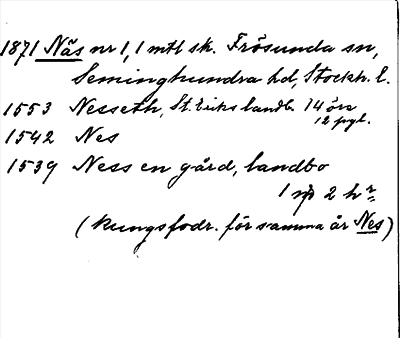 1871 Näs nr 1, 1 mtl sk. Frösunda sn,
Seminghundra hd, Stockh. l.
1553 Nesseth, St. Eriks landb. 14 öre
12 pgl.
1542 Nes
1539 Ness en gård, landbo
1 2 hr
(Kungsfodr. för samma år Nes)